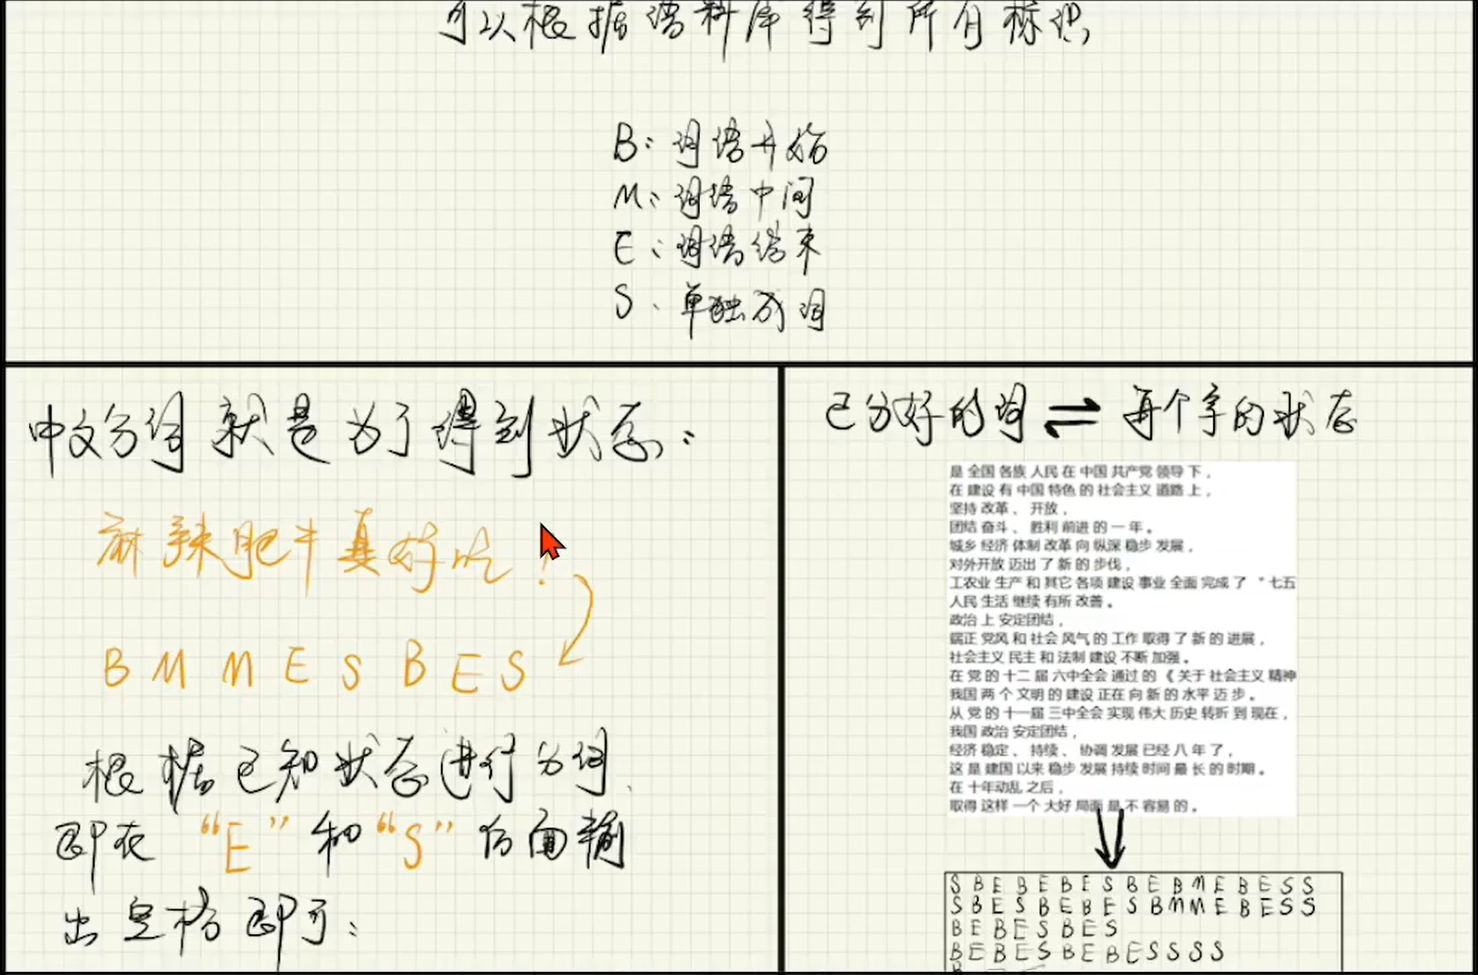 可以根据语料库得到所有标识
B：词语开始
M：词语中间
E：词语结束
S：单独成词
中文分词就是为了得到状态：
麻辣肥牛真好吃！
B M M E S B E S
根据已知状态进行分词，
即在“E”和“S”后面输
出空格即可：
已分好的词 ⇌ 每个字的状态
是 全国 各族 人民 在 中国 共产党 领导 下 ，
在 建设 有 中国 特色 的 社会主义 道路 上 ，
坚持 改革 、 开放 ，
团结 奋斗 、 胜利 前进 的 一 年 。
城乡 经济 体制 改革 向 纵深 稳步 发展 ，
对外开放 迈出 了 新 的 步伐 ，
工农业 生产 和 其它 各项 建设 事业 全面 完成 了 “ 七五
人民 生活 继续 有所 改善 。
政治 上 安定团结 ，
端正 党风 和 社会 风气 的 工作 取得 了 新 的 进展 ，
社会主义 民主 和 法制 建设 不断 加强 。
在 党 的 十二 届 六中全会 通过 的 《 关于 社会主义 精神
我国 两 个 文明 的 建设 正在 向 新 的 水平 迈 步 。
从 党 的 十一届 三中全会 实现 伟大 历史 转折 到 现在 ，
我国 政治 安定团结 ，
经济 稳定 、 持续 、 协调 发展 已经 八 年 了 ，
这 是 建国 以来 稳步 发展 持续 时间 最 长 的 时期 。
在 十年动乱 之后 ，
取得 这样 一个 大好 局面 是 不 容易 的 。
S B E B E B E S B E B M E B E S S
S B E S B E B E S B M M E B E S S
B E B E S B E S
B E B E S B E B E S S S S